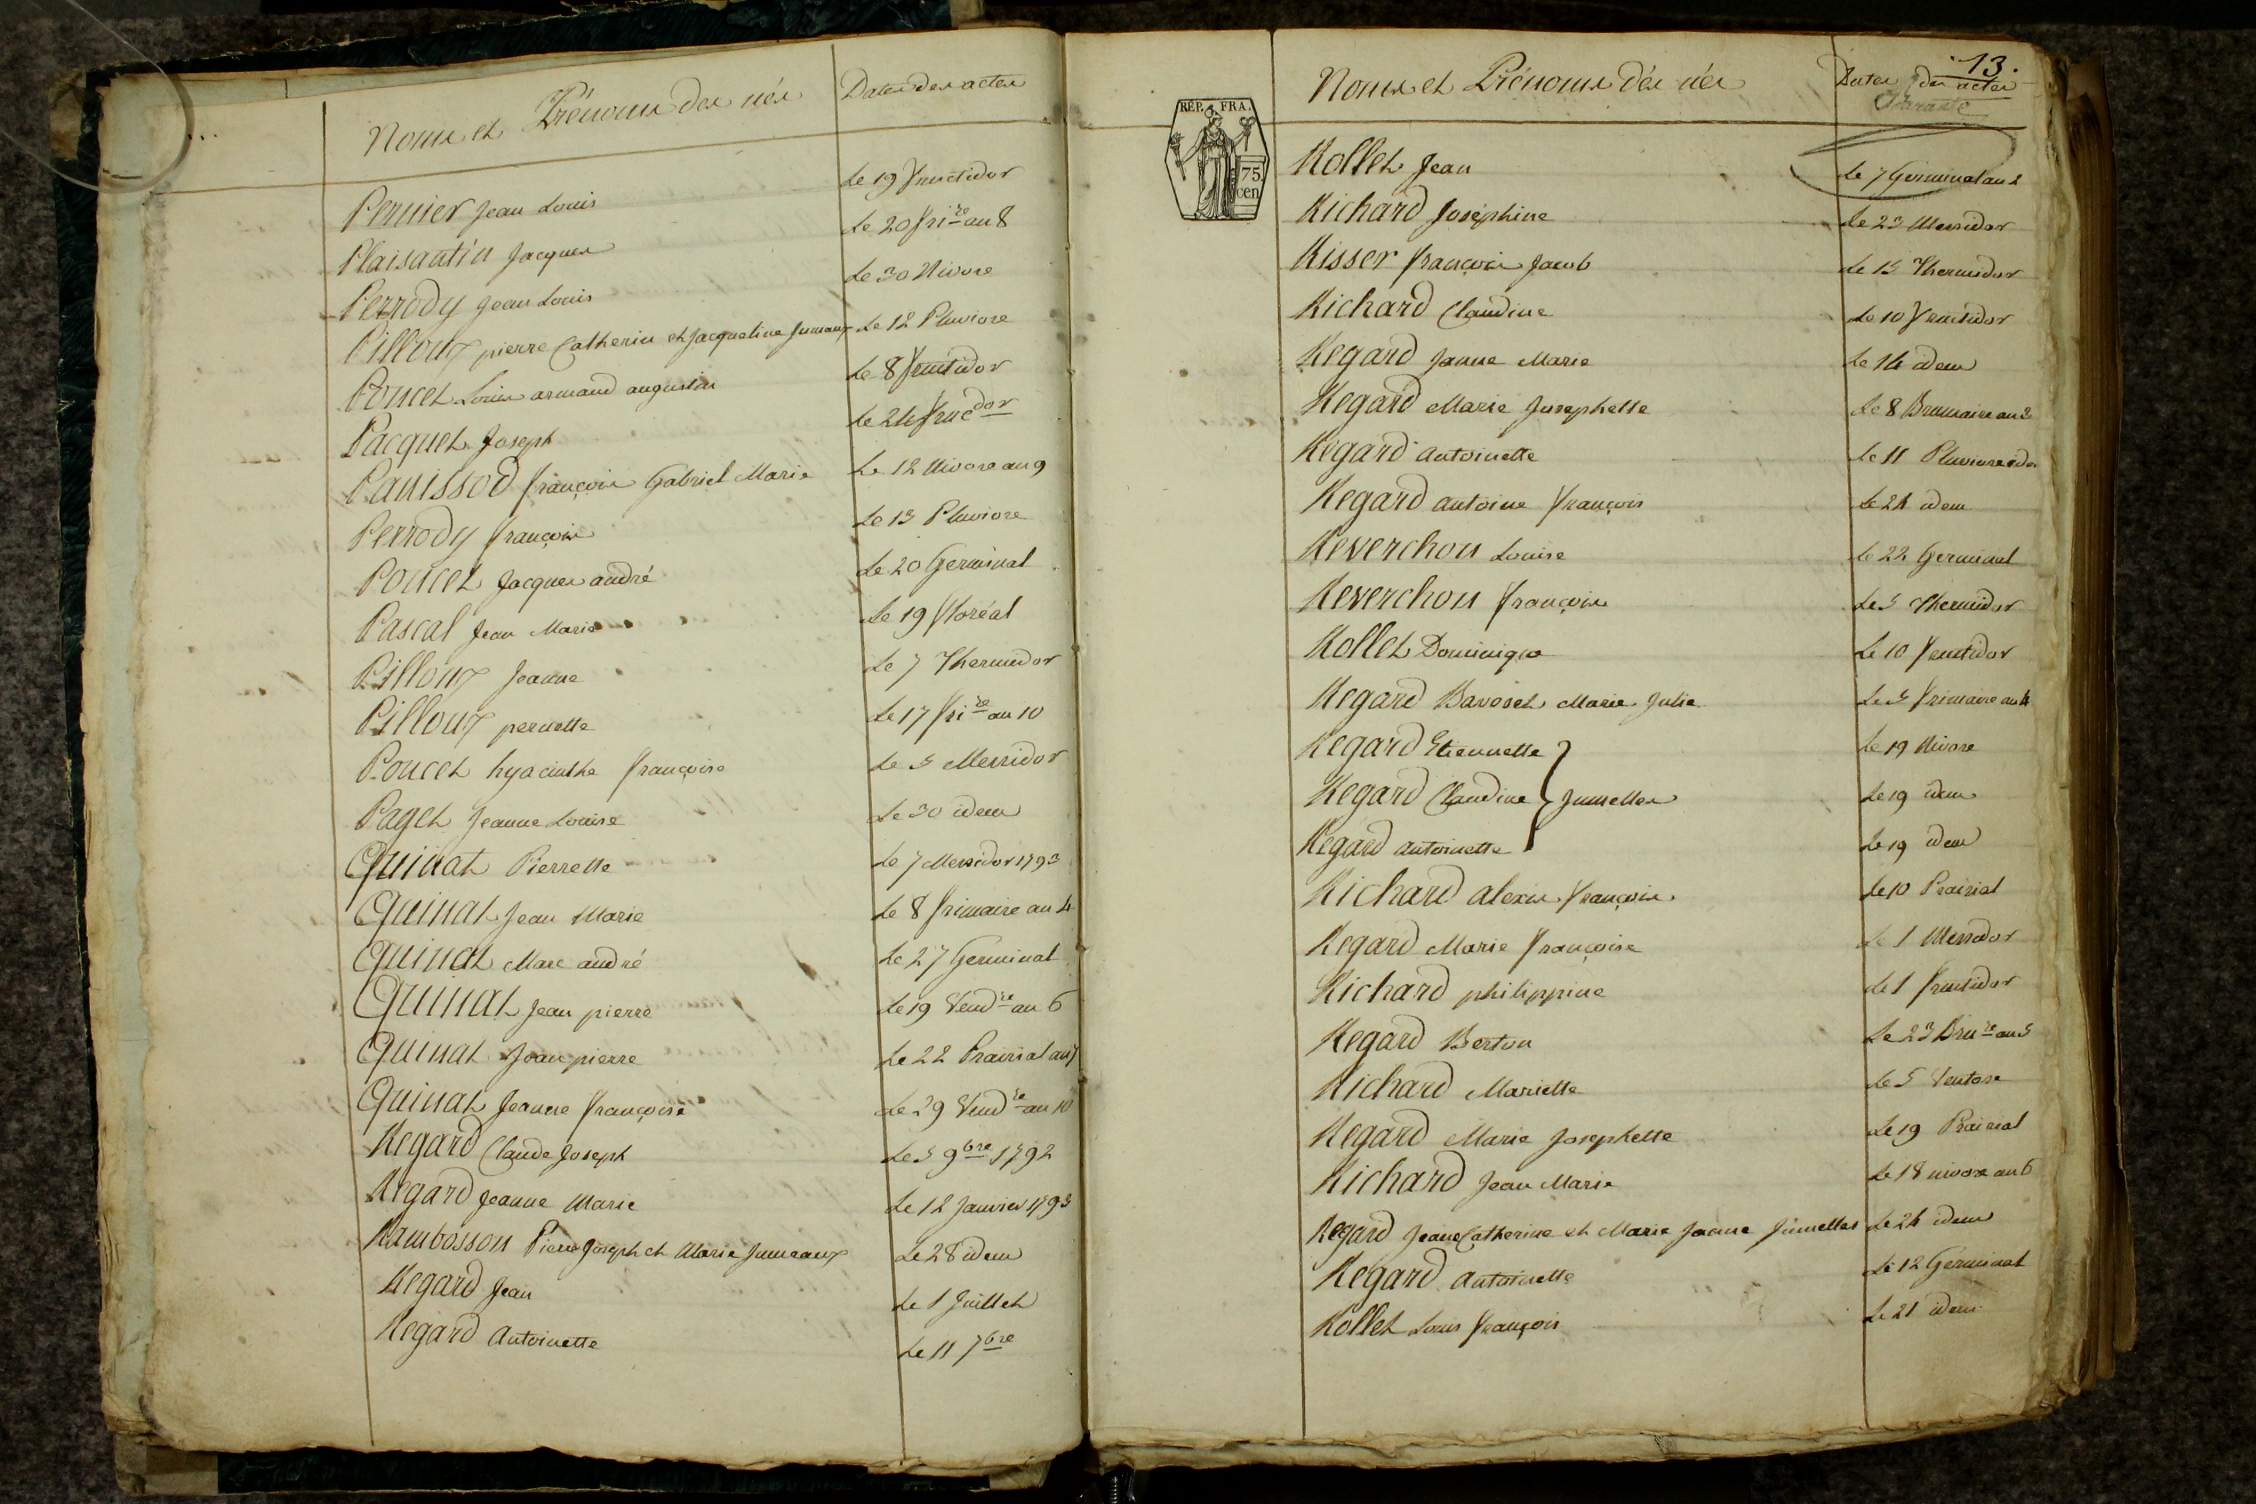 Noms et Prénoms des nés Dates des actes
Pernier Jean Louis Le 19 fructidor
Plaisantin Jacques Le 20 fri.re an 8
Perrody Jean Louis Le 30 Nivose
Pilloux pierre Catherin et Jacqueline Jumaux Le 12 Pluviose
Poncet Louis armand augustin Le 8 fructidor
Pacquet Joseph Le 24 fruc.dor
Panissod françois Gabriel Marie Le 12 Nivose an 9
Perrody françois Le 13 Pluviose
Poncet Jacques andré Le 20 Germinal
Pascal Jean Marie Le 19 floréal
Pilloux Jeanne Le 7 Thermidor
Pilloux pernette Le 17 fri.re an 10
Poncet hyacinthe françoise Le 5 Messidor
Paget Jeanne Louise Le 30 idem
Quinat Pierrette Le 7 Messidor 1793
Quinat Jean Marie Le 8 frimaire an 4
Quinat Marc andré Le 27 Germinal
Quinat Jean pierre Le 19 Vend.re an 6
Quinat Jean pierre Le 22 Prairial an 7
Quinat Jeanne françoise Le 29 Vend.re an 10
Regard Claude Joseph Le 5 9bre 1792
Regard Jeanne Marie Le 12 Janvier 1793
Rambosson Pierre Joseph et Marie Jumeaux Le 28 idem
Regard Jean Le 1 Juillet
Regard Antoinette Le 11 7bre
13.
Noms et Prénoms des nés Dates des actes
RÉP. FRA.
75
cen
Rollet Jean Le 7 Germinal an 2
Richard Joséphine Le 23 Messidor
Risser françois Jacob Le 15 Thermidor
Richard Claudine Le 10 fructidor
Regard Janne Marie Le 14 idem
Regard Marie Josephette Le 8 Brumaire an 3
Regard antoinette Le 11 Pluviose idem
Regard antoine françois Le 24 idem
Reverchon Louise Le 22 Germinal
Reverchon françois Le 5 Thermidor
Rollet Dominique Le 10 fructidor
Regard Bavoset Marie Julie Le 5 frimaire an 4
Regard Etiennette Le 19 Nivose
Regard Claudine Jumelles Le 19 idem
Regard antoinette Le 19 idem
Richard alexis françois Le 10 Prairial
Regard Marie françoise Le 1 Messidor
Richard philippine Le 1 fructidor
Regard Berton Le 23 Bru.re an 5
Richard Mariette Le 5 Ventose
Regard Marie Josephette Le 19 Prairial
Richard Jean Marie Le 18 nivose an 6
Regard Jeane Catherine et Marie Janne Jumelles Le 24 idem
Regard antoinette Le 12 Germinal
Rollet Louis françois Le 21 idem